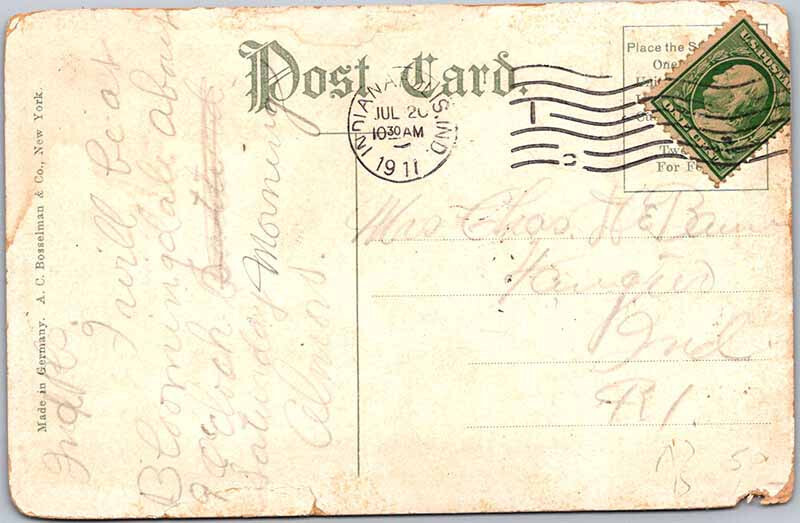 Post Card.
Made in Germany. A. C. Bosselman & Co., New York.
INDIANAPOLIS, IND.
JUL 20
10 30 AM
1911
Place the S
One
Unit
Two
For Fo
U.S. POSTAGE
ONE CENT
Indpls
I will be at
Bloomingdale about
9 oclock
Saturday Morning
Mrs Chas. H.
Ind
R 1